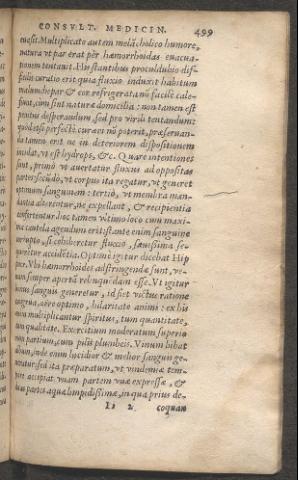 CONSVLT. MEDICIN. 499
euasit. Multiplicato autem melācholico humore,
natura vt par erat per hæmorrhoidas euacua-
tionem tentauit. His stantibus proculdubio dif-
ficilis curatio erit quia fluxio induxit habitum
malum: hepar & cor refrigerata nō facilè cale-
fiunt, cum sint naturæ domicilia: non tamen est
penitus desperandum, sed pro virib⁹ tentandum:
quòd etsi perfectè curari nō poterit, præseruan-
da tamen erit ne in deteriorem dispositionem
incidat, vt est hydrops, &c. Quare intentiones
sunt, primò vt auertatur fluxus ad oppositas
partes: secūdò, vt corpus ita regatur, vt generet
optimum sanguinem: tertiò, vt membra man-
dantia alterentur, ne expellant, & recipientia
confortentur: hoc tamen vltimo loco cum maxi-
ma cautela agendum erit: stante enim sanguine
corrupto, si cohiberetur fluxio, sæuissima se-
querētur accidētia. Optimè igitur dicebat Hip
per. Vbi hæmorrhoides adstringendæ sunt, v-
nam semper apertā relinquēdam esse. Vt igitur
bonus sanguis generetur, id fiet victus ratione
congrua, aëre optimo, hilaritate animi: ex his
enim multiplicantur spiritus, tum quantitate,
tum qualitate. Exercitium moderatum superio
rum partium, cum pilis plumbeis. Vinum bibat
album, inde enim lucidior & melior sanguis ge-
neratur: sed ita præparatum, vt vindemiæ tem-
pore accipiat vnam partem vuæ expressæ, &
duas partes aquæ limpidissimæ, in qua prius de-
Ii 2 coquan